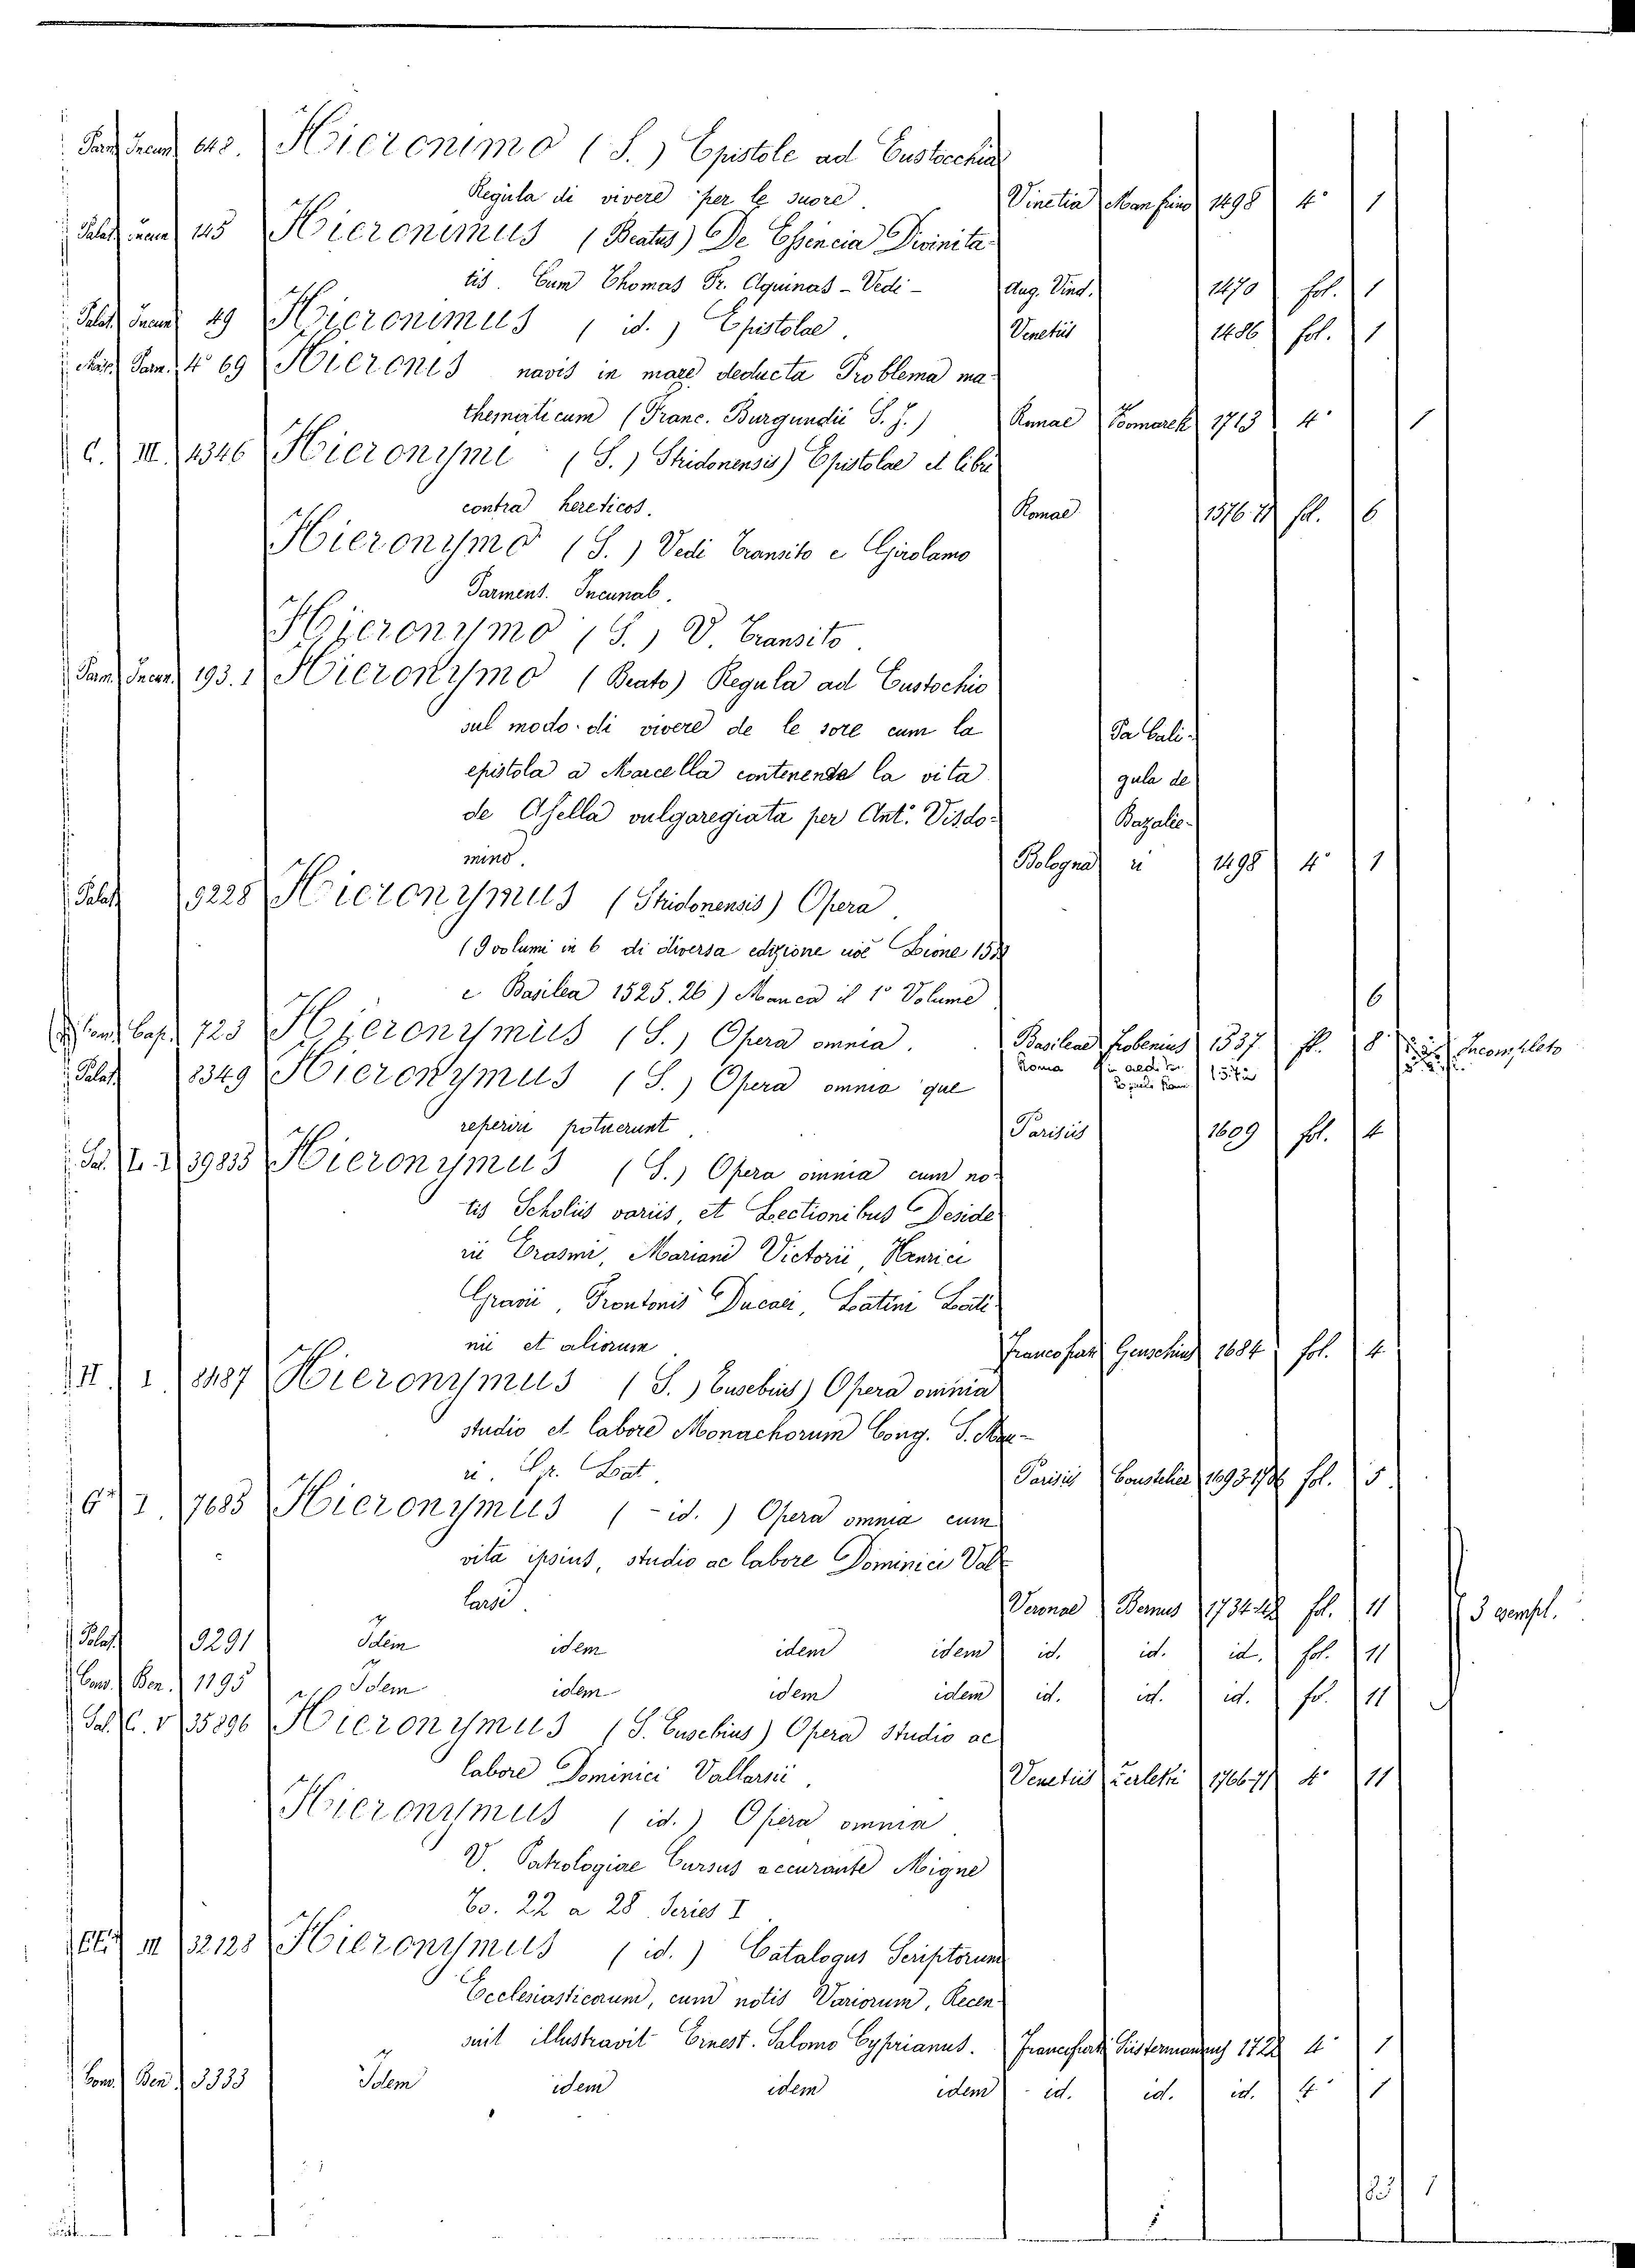 Parm. Incun. 648. Hieronimo (S.) Epistole ad Eustochia
Regula di vivere per le suore. Vinetia Manfrino 1498 4° 1
Palat. incun. 145 Hieronimus (Beatus) De Essencia Divinita-
tis. Cum Thomas Fr. Aquinas - Vedi - Aug. Vind. 1470 fol. 1
Palat. Incun. 49 Hieronimus (id.) Epistolae. Venetiis 1486 fol. 1
Parm. 4° 69 Hieronis navis in mare deducta Problema ma-
thematicum (Franc. Burgundii S. J.) Romae Komarek 1713 4° 1
C. III. 4346 Hieronymi (S.) Stridonensis) Epistolae et libri
contra hereticos. Romae 1576.77 fol. 6
Hieronymo (S.) Vedi Transito e Girolamo
Parmens. Incunab.
Hieronymo (S.) V. Transito.
Parm. Incun. 193.1 Hieronymo (Beato) Regula ad Eustochio
sul modo di vivere de le sore cum la Da Cali-
epistola a Marcella contenente la vita gula de
de Asella vulgaregiata per Ant.° Visdo- Bazalie-
mino. Bologna ri 1498 4° 1
Palat. 9228 Hieronymus (Stridonensis) Opera.
(9 volumi in 6 di diversa edizione cioè Lione
e Basilea 1525.26) Manca il 1° Volume 6
Cap. 723 Hieronymus (S.) Opera omnia. Basileae Frobenius 1537 fol. 8 Incompleto
Palat. 8349 Hieronymus (S.) Opera omnia que Roma in aed. 1572
reperiri potuerunt Parisiis 1609 fol. 4
Sal. L. I 39833 Hieronymus (S.) Opera omnia cum no-
tis Scholiis variis, et Lectionibus Deside
rii Erasmi, Mariani Victorii, Henrici
Gravii, Frontonis Ducaei, Latini Lati-
nii et aliorum Francofurt. Genschius 1684 fol. 4
II. I 8487 Hieronymus (S.) Eusebius) Opera omnia
studio et labore Monachorum Cong. S. Mau-
ri. Gr. Lat. Parisiis Coustelier 1693.1706 fol. 5
G* I. 7685 Hieronymus (- id.) Opera omnia cum
vita ipsius, studio ac labore Dominici Val-
larsi. Veronae Bernus 1734.42 fol. 11 3 esempl.
Palat. 9291 Idem idem idem idem id. id. id. fol. 11
Conv. Ben. 1195 Idem idem idem idem id. id. id. fol. 11
Sal. C. V 35896 Hieronymus (S. Eusebius) Opera Studio ac
labore Dominici Vallarsii. Venetiis Zerletti 1766.71 4° 11
Hieronymus (id.) Opera omnia
V. Patrologiae Cursus accurante Migne
To. 22 a 28. Series I
III 32128 Hieronymus (id.) Catalogus Scriptorum
Ecclesiasticorum, cum notis Variorum, Recen-
suit illustravit Ernest. Salomo Cyprianus. Francofurti 1722 4° 1
Conv. Ben. 3333 Idem idem idem idem id. id. id. 4° 1